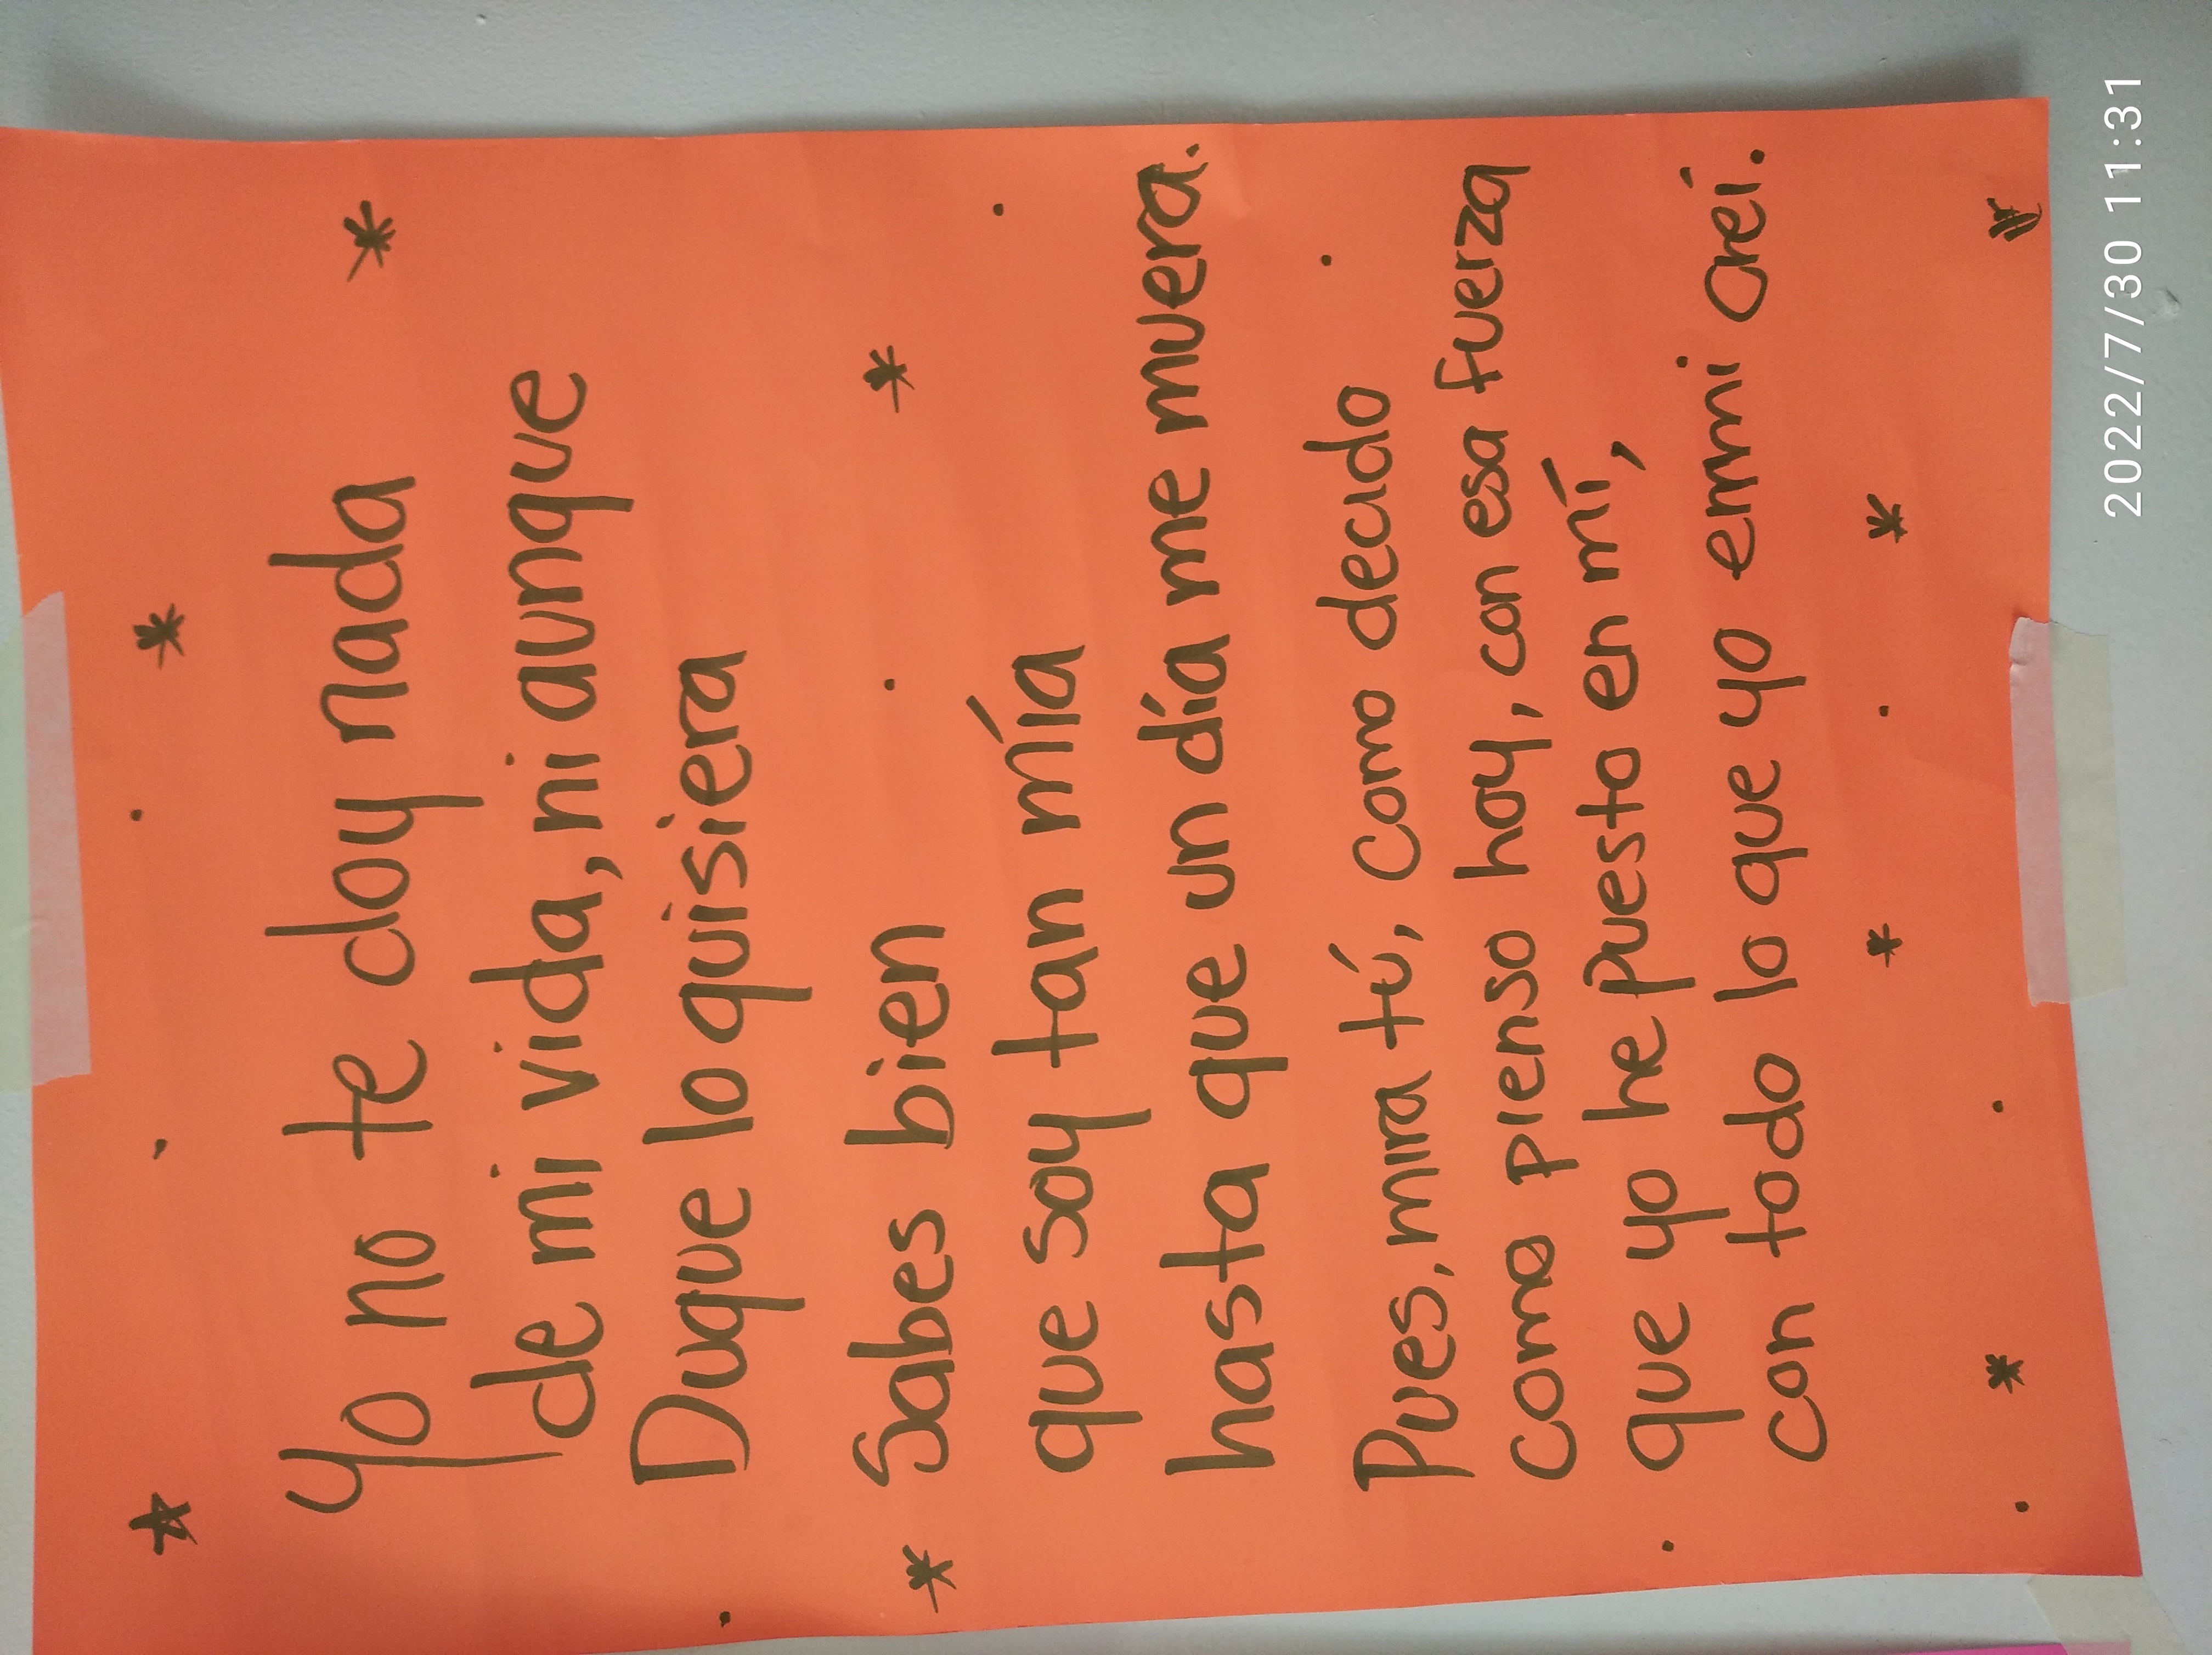 Yo no te doy nada
de mi vida, ni aunque
Duque lo quisiera
Sabes bien
que soy tan mía
hasta que un día me muera.
Pues, mira tú, como decido
como pienso hoy, con esa fuerza
que yo he puesto en mí,
con todo lo que yo en mi creí.
2022/7/30 11:31